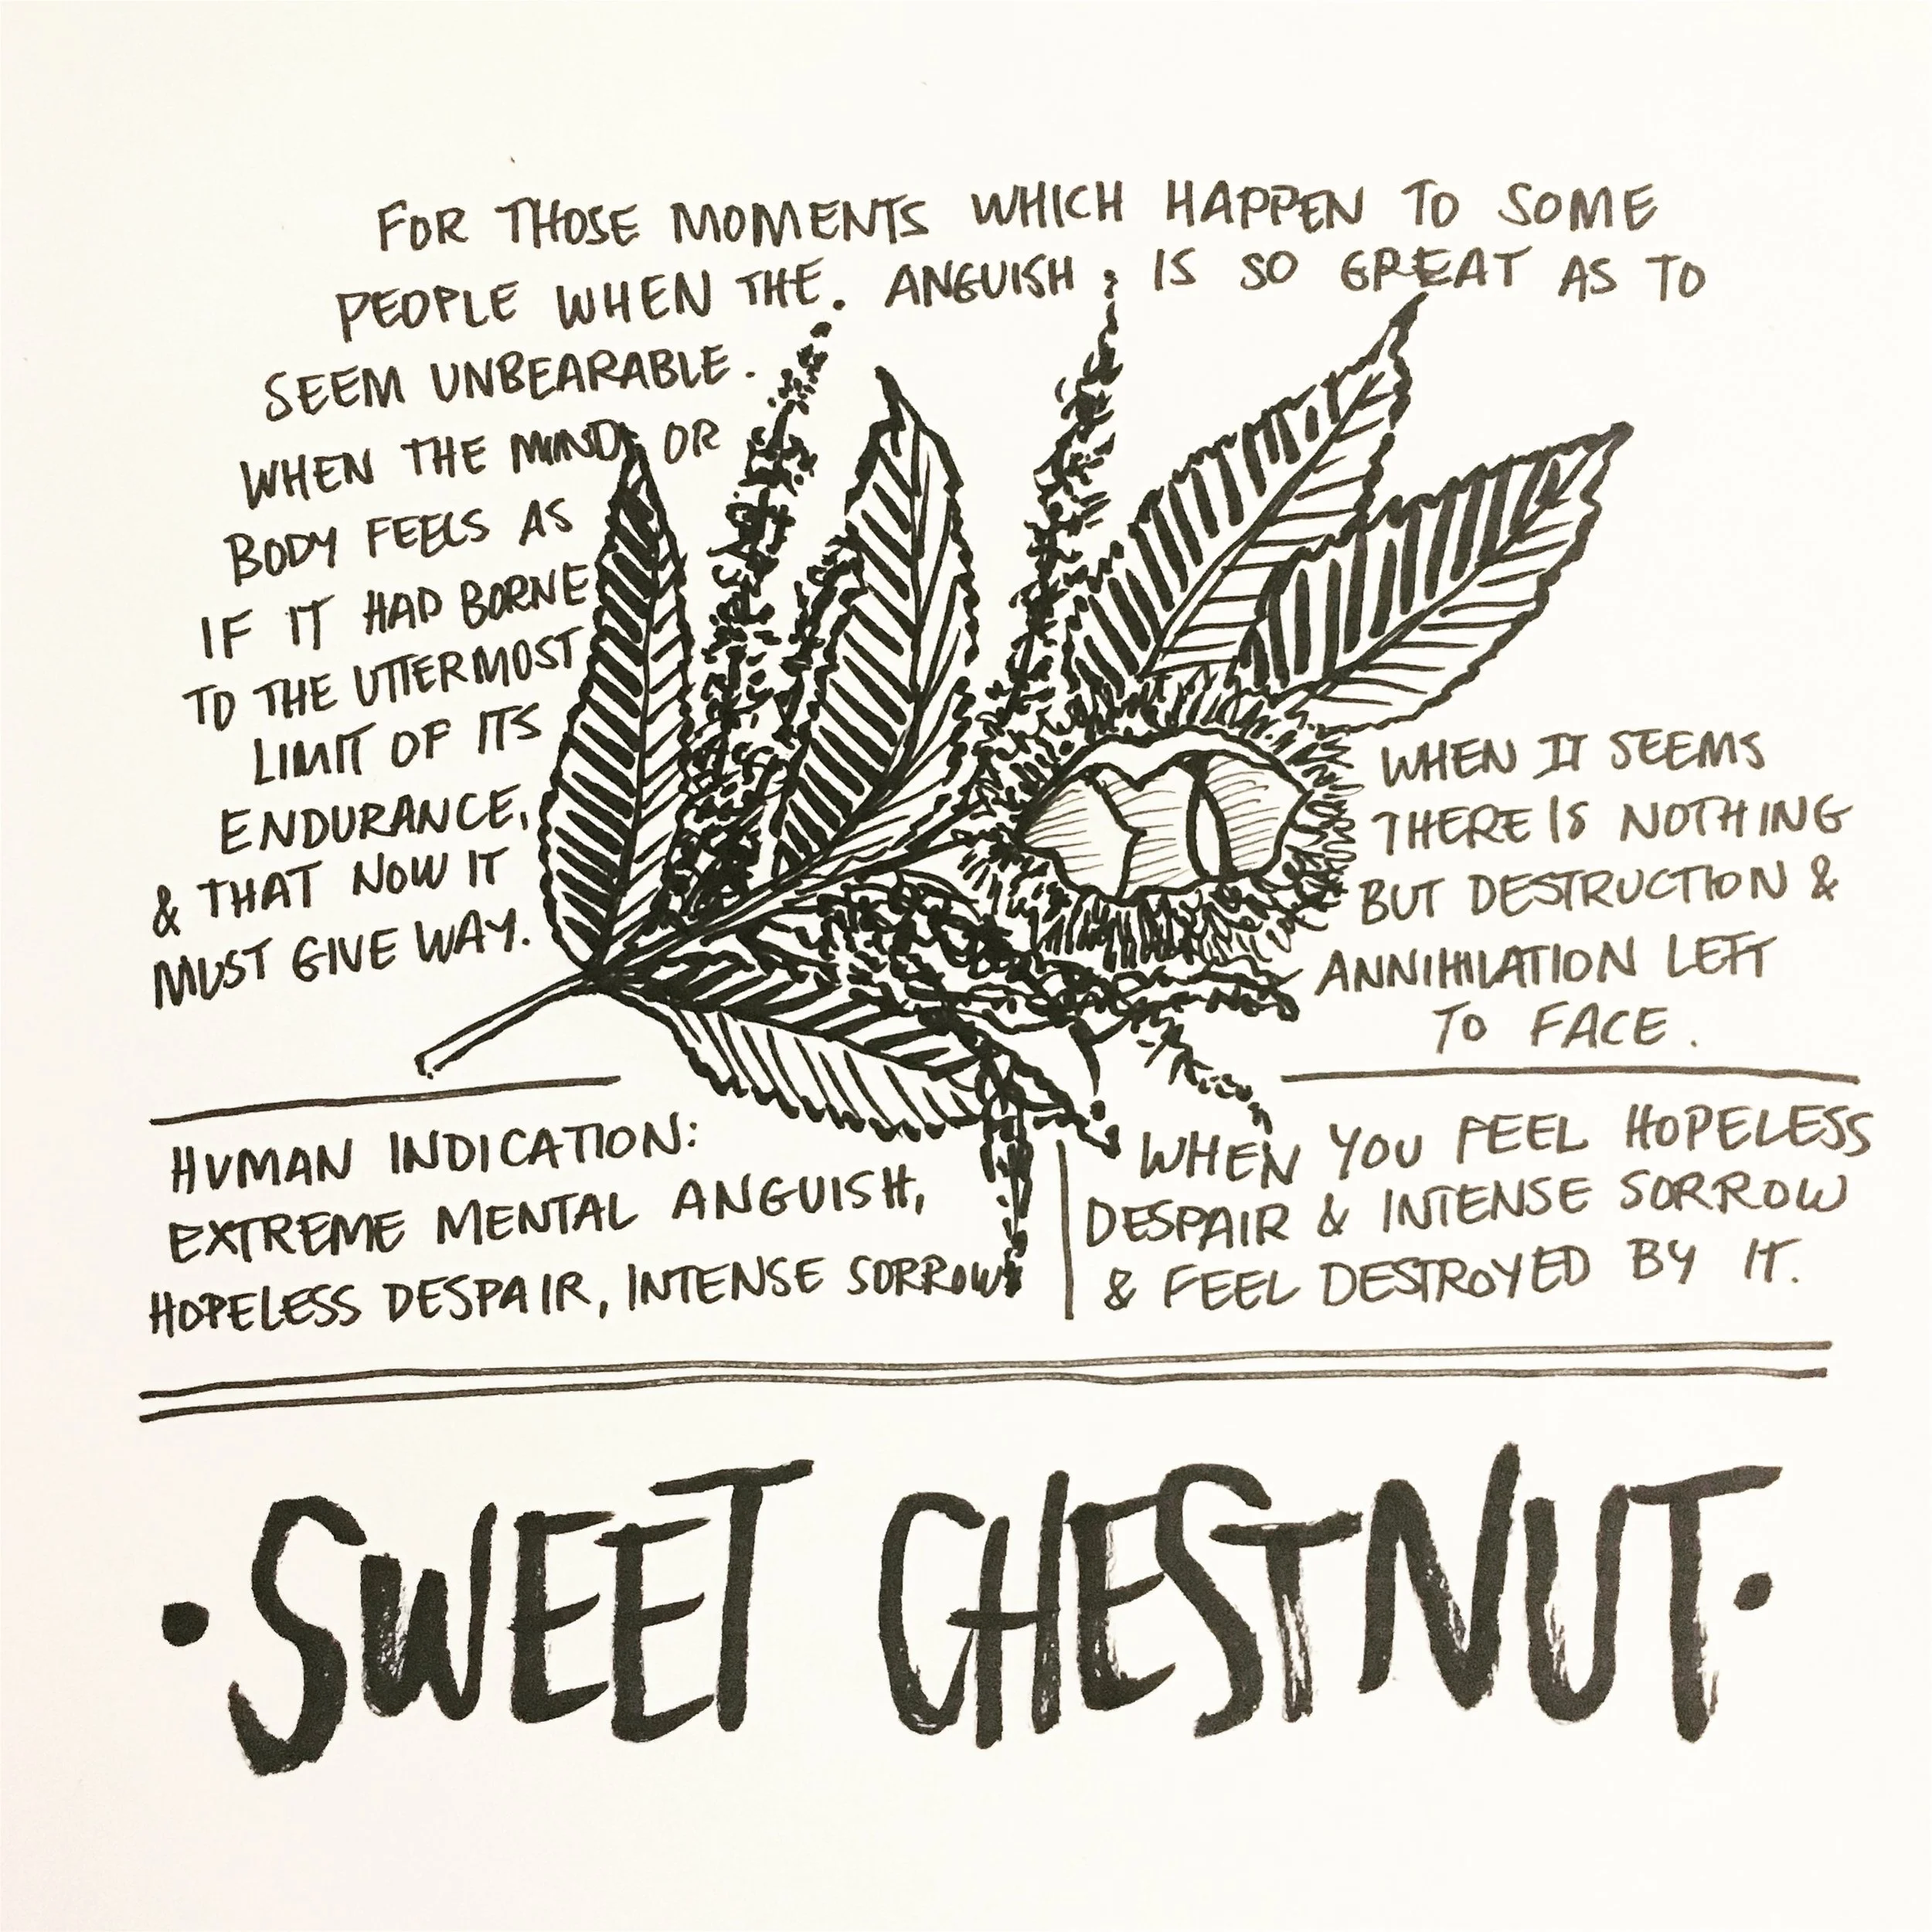 FOR THOSE MOMENTS WHICH HAPPEN TO SOME
PEOPLE WHEN THE ANGUISH IS SO GREAT AS TO
SEEM UNBEARABLE.
WHEN THE MIND OR
BODY FEELS AS
IF IT HAD BORNE
TO THE UTTERMOST
LIMIT OF ITS
ENDURANCE,
& THAT NOW IT
MUST GIVE WAY.
WHEN IT SEEMS
THERE IS NOTHING
BUT DESTRUCTION &
ANNIHILATION LEFT
TO FACE.
HUMAN INDICATION:
EXTREME MENTAL ANGUISH,
HOPELESS DESPAIR, INTENSE SORROW
WHEN YOU FEEL HOPELESS
DESPAIR & INTENSE SORROW
& FEEL DESTROYED BY IT.
• SWEET CHESTNUT •